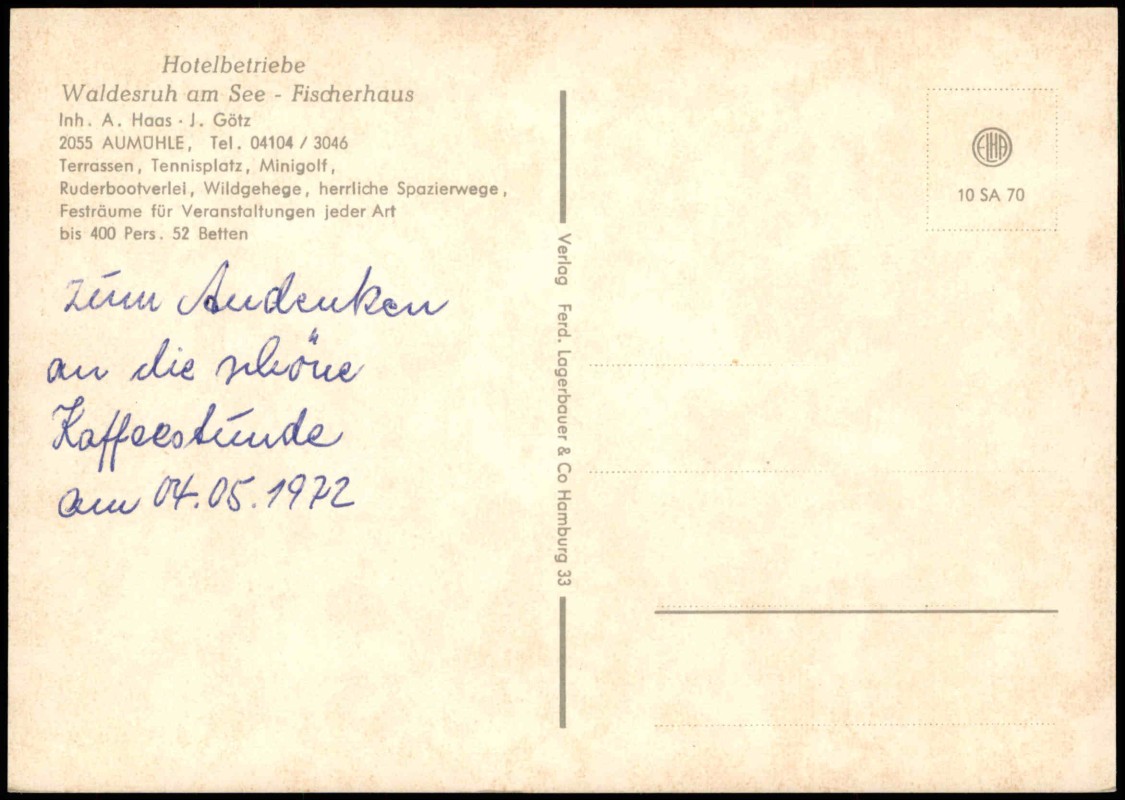 Hotelbetriebe
Waldesruh am See - Fischerhaus
Inh. A. Haas · J. Götz
2055 AUMÜHLE, Tel. 04104 / 3046
Terrassen, Tennisplatz, Minigolf,
Ruderbootverlei, Wildgehege, herrliche Spazierwege,
Festräume für Veranstaltungen jeder Art
bis 400 Pers. 52 Betten
zum Andenken
an die schöne
Kaffeestunde
am 04.05.1972
Verlag Ferd. Lagerbauer & Co Hamburg 33
ELHA
10 SA 70